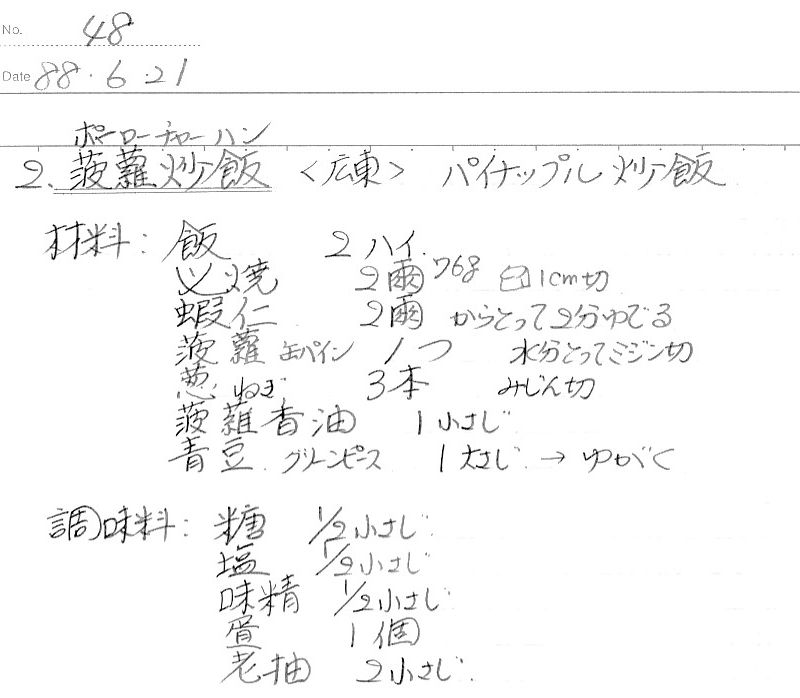 No. 48
Date 88.6.21
ポーローチャーハン
2. 菠蘿炒飯 <広東> パイナップル炒飯
材料: 飯 2ハイ
叉焼 2両 76g □1cm切
蝦仁 2両 からとって2分ゆでる
菠蘿 缶パイン 1つ 水分とってミジン切
葱 ねぎ 3本 みじん切
菠蘿香油 1小さじ
青豆 グリーンピース 1大さじ → ゆがく
調味料: 糖 1/2小さじ
塩 1/2小さじ
味精 1/2小さじ
蛋 1個
老抽 2小さじ